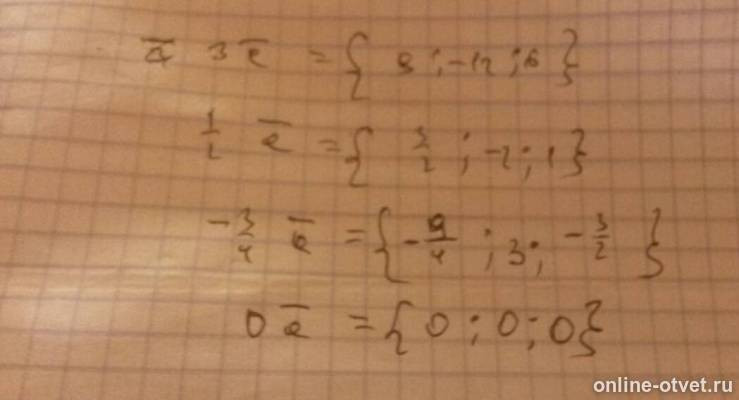 a̅ 3a̅ = { 9 ; -12 ; 6 }
1/2 a̅ = { 3/2 ; -2 ; 1 }
-3/4 a̅ = { -9/4 ; 3 ; -3/2 }
0 a̅ = { 0 ; 0 ; 0 }
online-otvet.ru